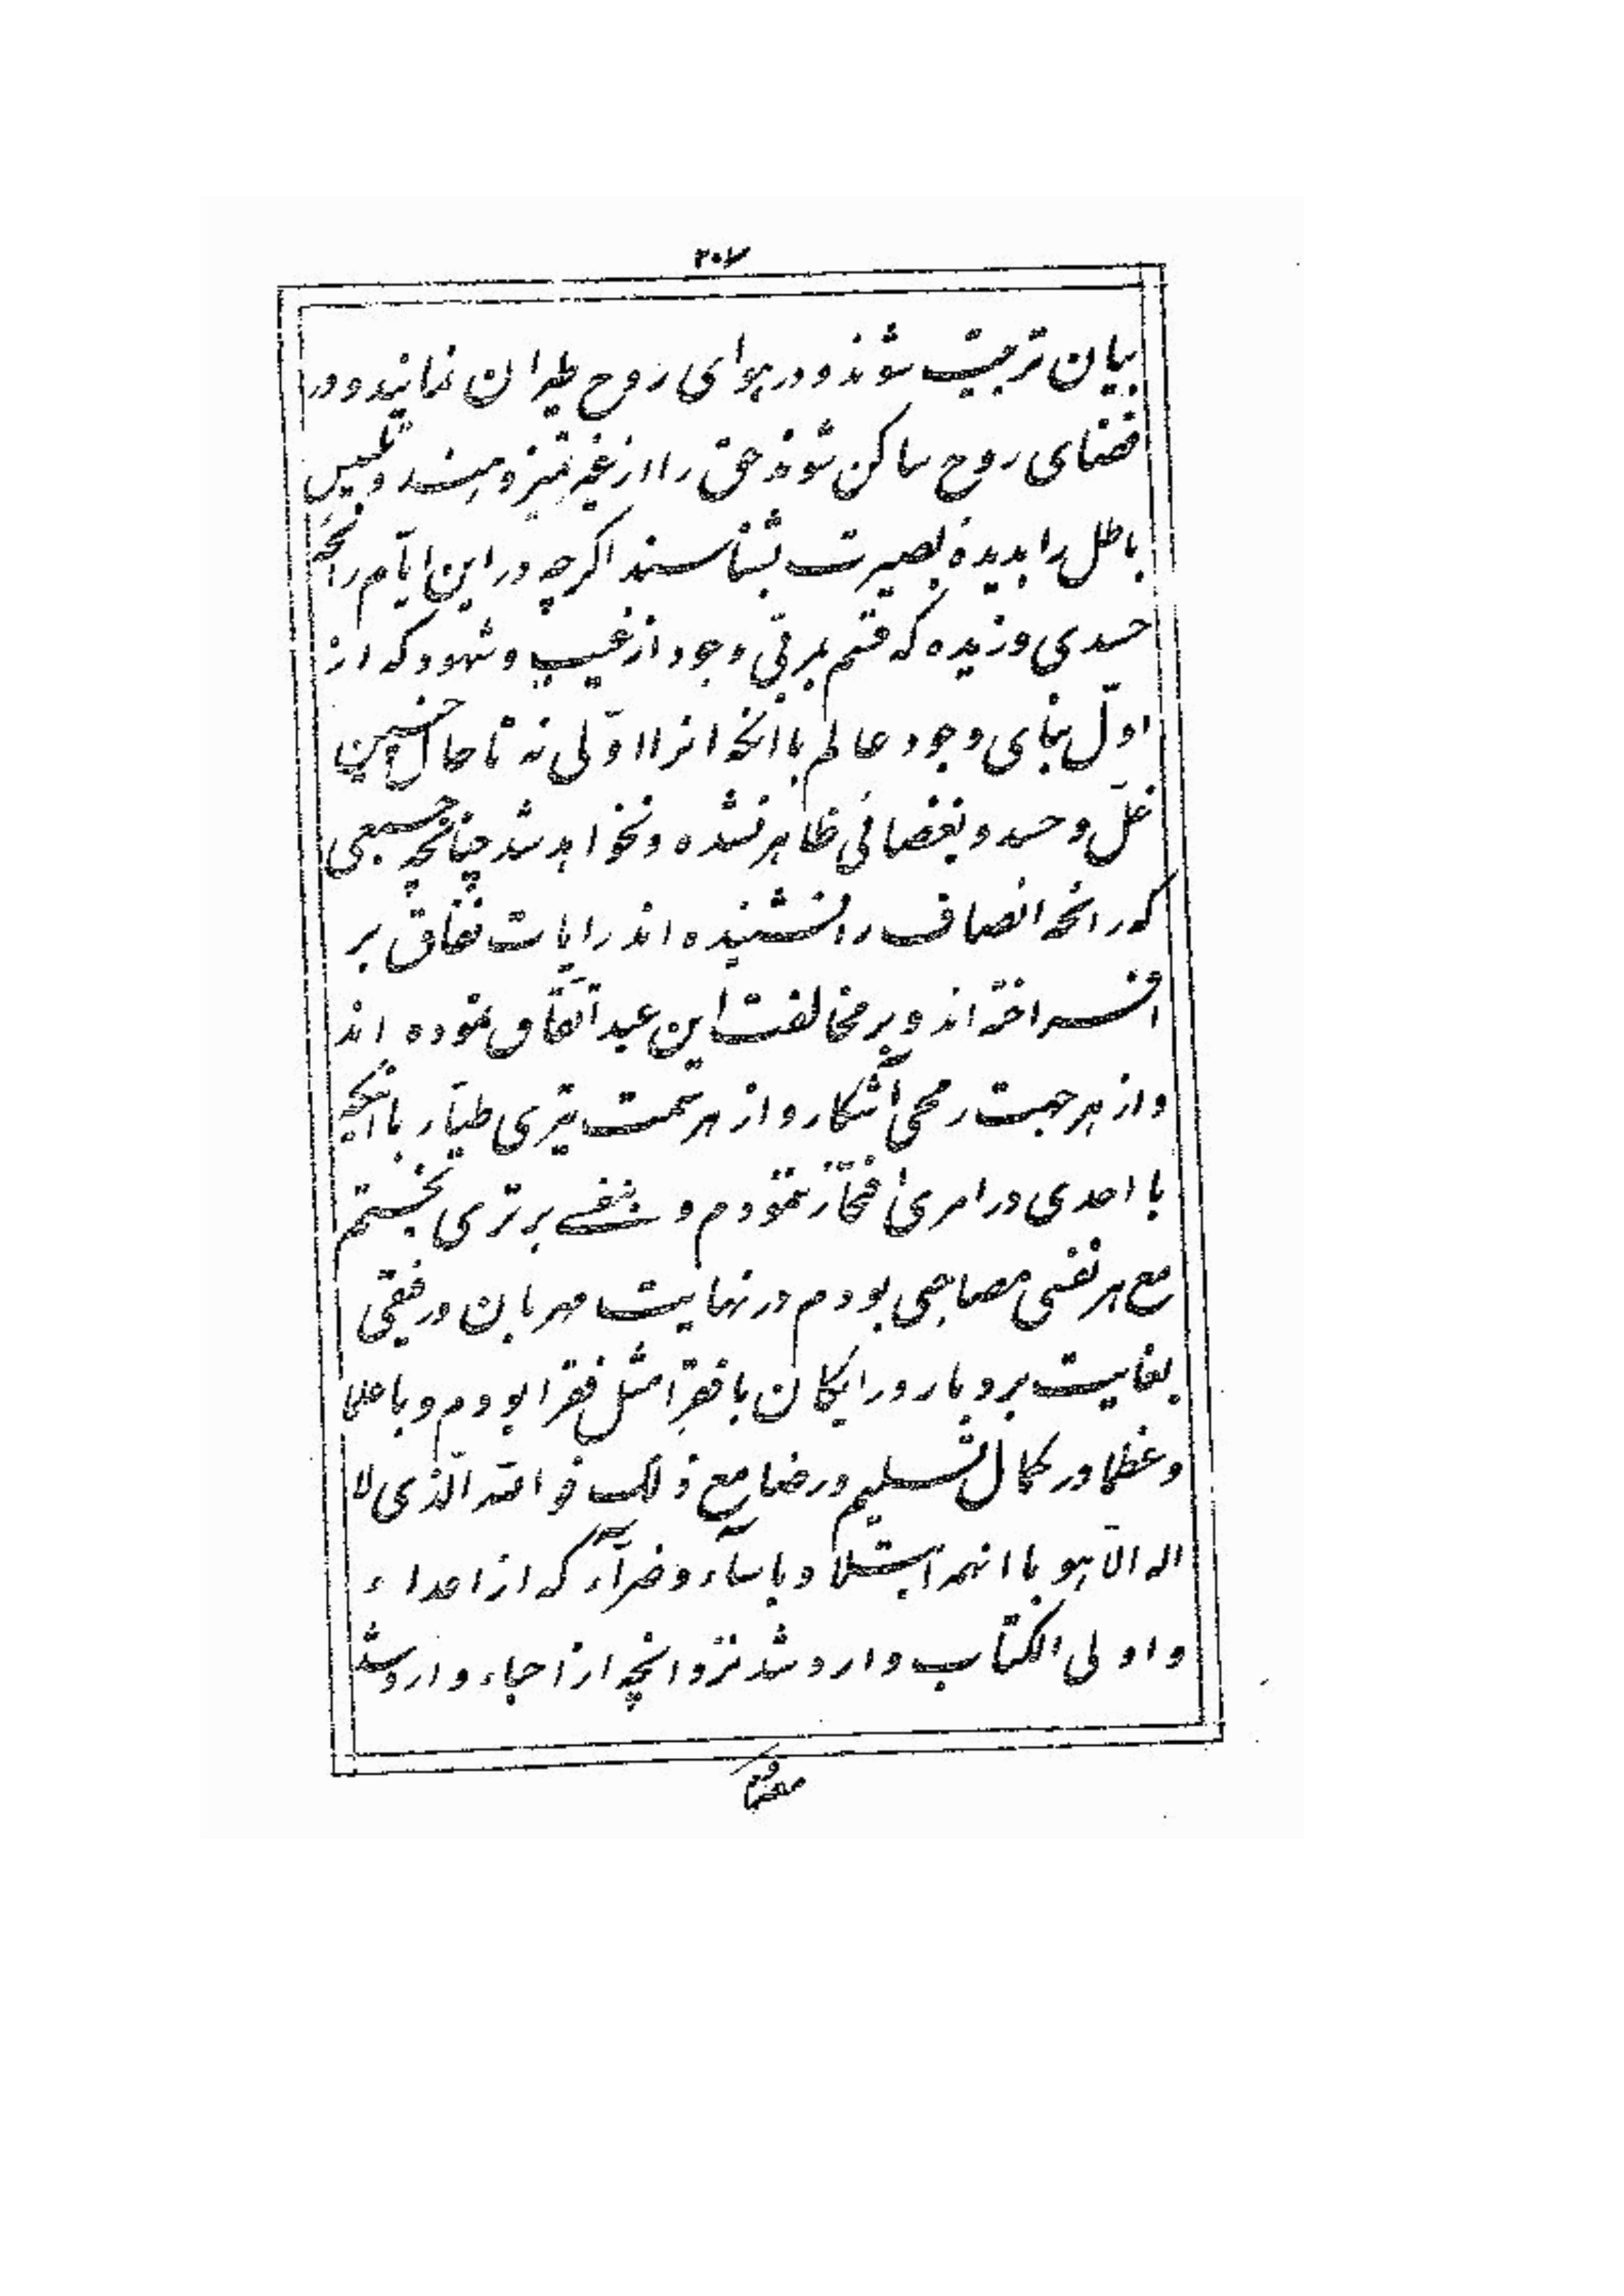 ۲۰۷
بیان تربیت شوند و در هوای روح طیران نمایند و در
فضای روح ساکن شوند حق را از غیر تمیز دهند و تلبیس
باطل را بدیدهٔ بصیرت بشناسند اگرچه در این ایّام رائحه
حسدی وزیده که قسم بمربّی وجود از غیب و شهود که از
اوّل بنای وجود عالم با انکه انرا اوّلی نه تا حال چنین
غلّ و حسد و بغضائی ظاهر نشده و نخواهد شد چنانچه جمعی
که رائحه انصاف را نشنیده اند رایات نفاق بر
افراخته اند و بر مخالفت این عبد اتّفاق نموده اند
و از هر جهت رمحی آشکار و از هر سمت تیری طیّار با انکه
با احدی در امری افتخار ننمودم و بنفسی برتری نجستم
مع هر نفسی مصاحبی بودم در نهایت مهربان و رفیقی
بغایت بردبار و رایکان با فقرآ مثل فقرا بودم و با علما
و عظما در کمال تسلیم و رضا مع ذلک فو الله الّذی لا
اله الّا هو با انهمه ابتلا و باسآء و ضرّآء که از اعداء
و اولی الکتاب وارد شد نزد انچه از احباء وارد شد
معدوم